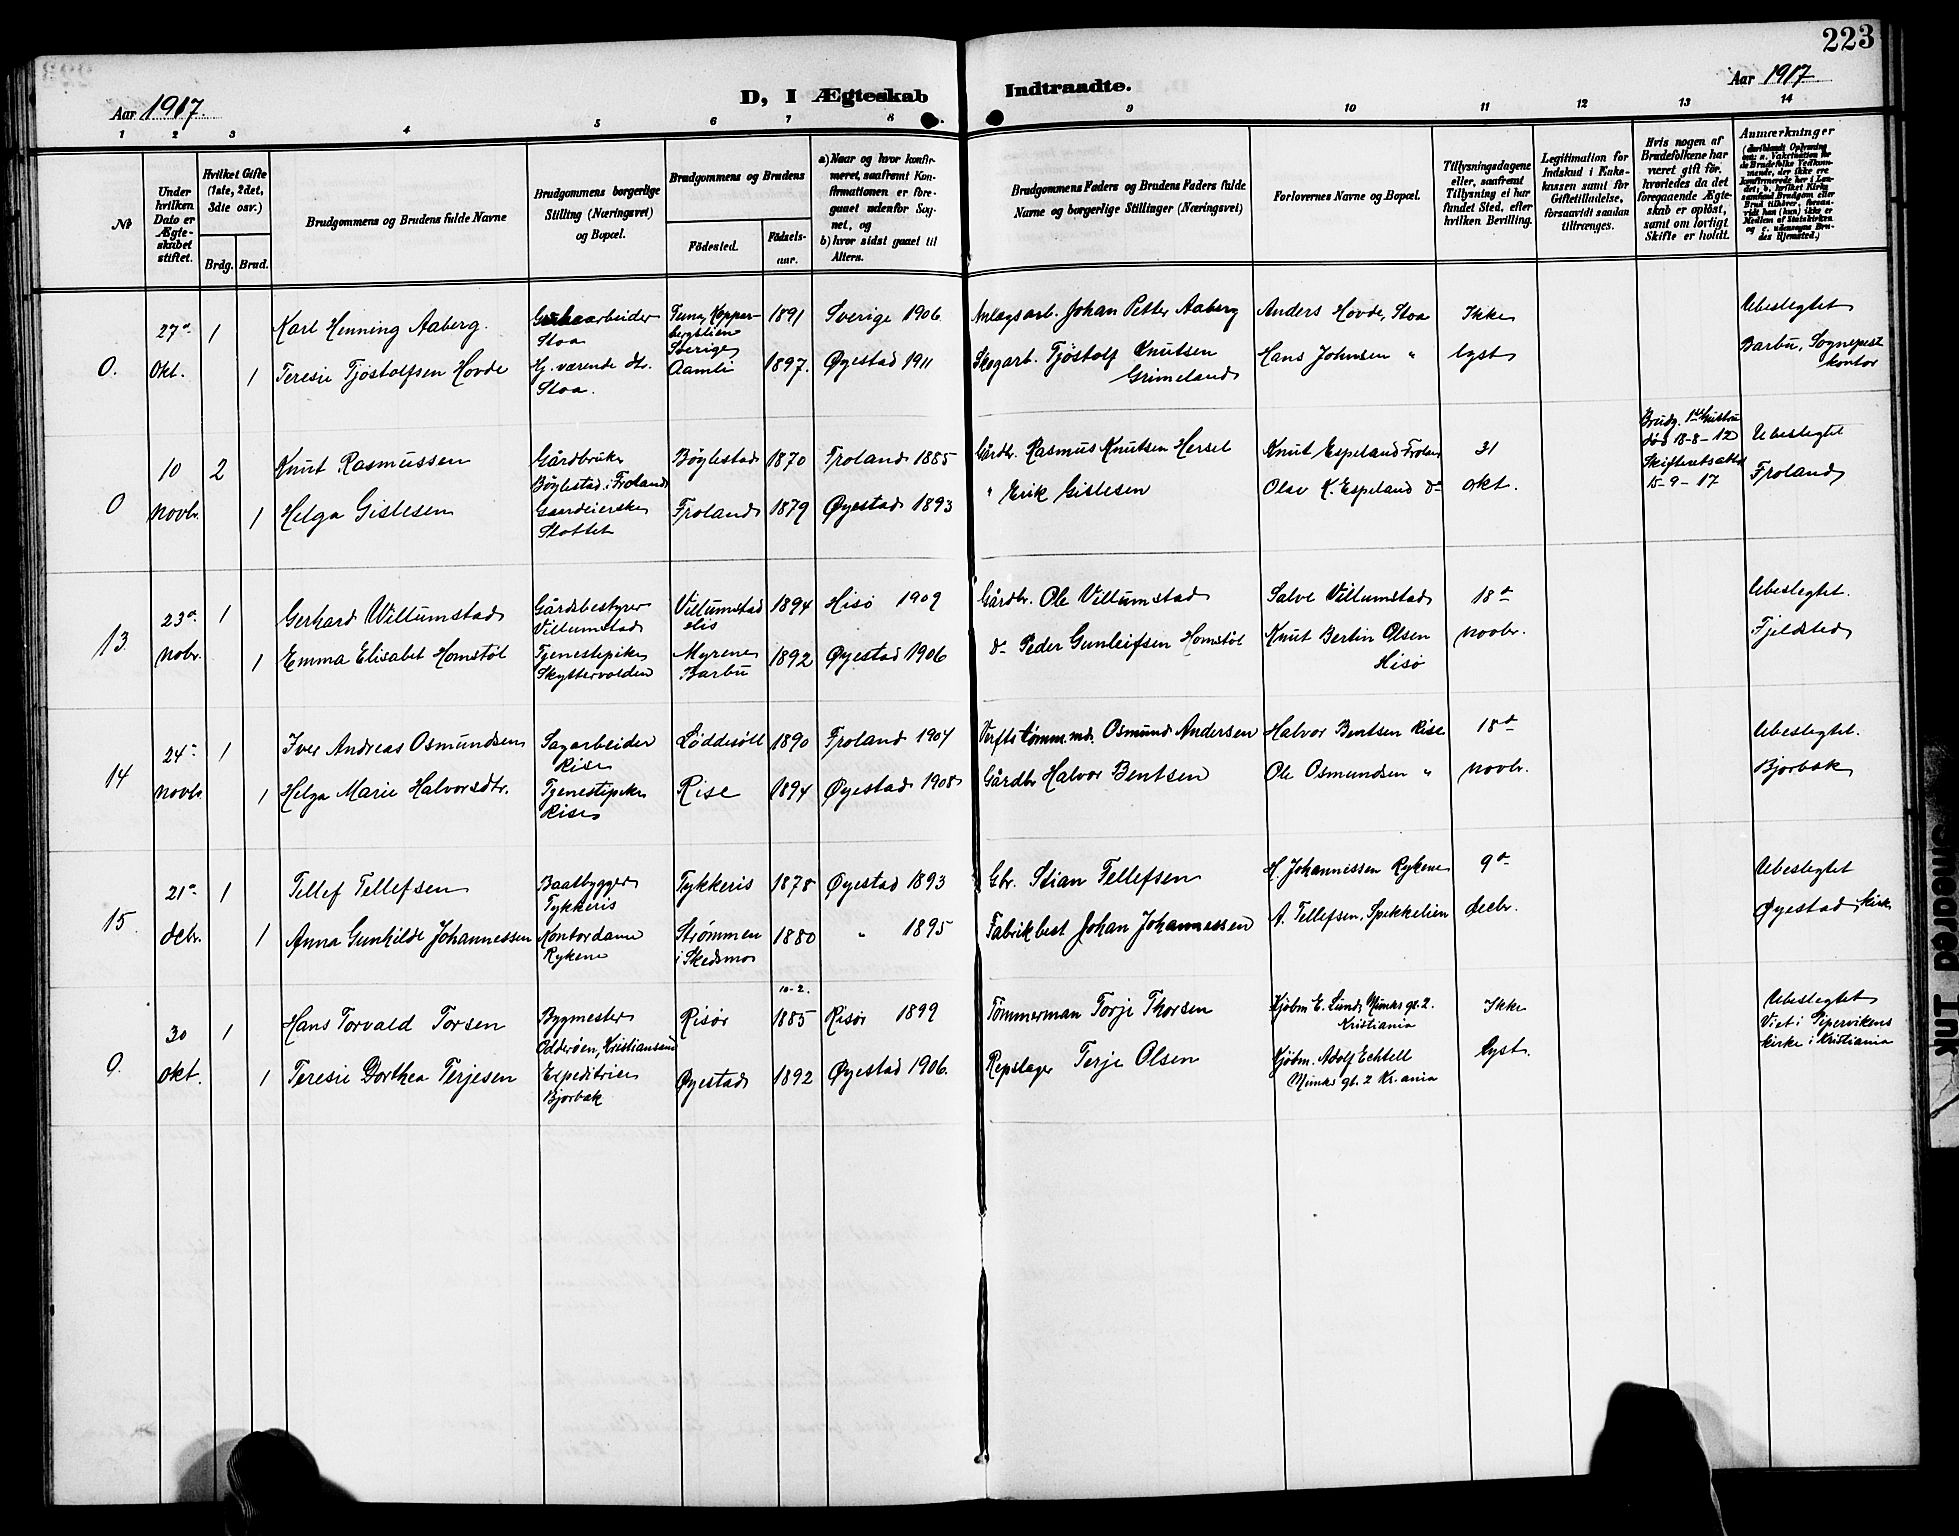 223
Aar 1917.
D, I Ægteskab
Indtraadte.
Aar 1917
1 2 3 4 5 6 7 8 9 10 11 12 13 14
№
Under hvilken Dato er Ægteskabet stiftet.
Hvilket Gifte (1ste, 2det, 3die osv.)
Brdg. Brud.
Brudgommens og Brudens fulde Navne
Brudgommens borgerlige Stilling (Næringsvei) og Bopæl.
Brudgommens og Brudens
Födested.
Födselsaar.
a) Naar og hvor konfirmeret, saafremt Konfirmationen er foregaaet udenfor Sognet, og
b) hvor sidst gaaet til Alters.
Brudgommens Faders og Brudens Faders fulde Navne og borgerlige Stillinger (Næringsvei)
Forlovernes Navne og Bopæl.
Tillysningsdagene eller, saafremt Tillysning ei har fundet Sted, efter hvilken Bevilling.
Legitimation for Indskud i Enkekassen samt for Giftetilladelse, forsaavidt saadan tiltrænges.
Hvis nogen af Brudefolkene har været gift för, hvorledes da det foregaaende Ægteskab er oplöst, samt om lovligt Skifte er holdt.
Anmærkninger
0. 27de Okt. 1
Karl Henning Aaberg.
arbeider Stoa
Tuna, Kopperbergslien Sverige
1891
Sverige 1906
Anlægsarb. Johan Petter Aaberg
Anders Hovde, Stoa
Ikke lyst
Ubeslegtet
Barbu, Sogneprest kontor
1
Teresie Tjöstolfsen Hovde
Hj. værende dtr. Stoa.
Aamli
1897.
Øyestad 1911
Skogarb. Tjöstolf Knutsen Grimeland
Hans Johnsen "
0 10 novbr. 2
Knut Rasmussen
Gårdbruker Böylestad i Froland
Böylestad
1870
Froland 1885
Gårdbr. Rasmus Knutsen Hersel
Knut Espeland Froland
31 okt.
Brudg. 1ste hustru död 18-8-12 Skifteretsattest 15-9-17
Ubeslegtet
Froland
1
Helga Gislesen
Gaardeierske Slottet
Froland
1879
Øyestad 1893
" Erik Gislesen
Olav K. Espeland do
13. 23de nobr. 1
Gerhard Willumstad
Gårdsbestyrer Villumstad
Villumstad His
1894
Hisö 1909
Gårdbr. Ole Villumstad
Salve Villumstad
18de novbr.
Ubeslegtet.
Fjeldsted
1
Emma Elisabet Homstöl
Tjenestepike Skyttervolden
Myrene Barbu
1892
Øyestad 1906
do Peder Gunleifsen Homstöl
Knut Bertin Olsen Hisö
14 24de novbr 1
Iver Andreas Osmundsen
Sagarbeider Rise
Löddesöll
1890
Froland 1904
Verftstömm.md. Osmund Andersen
Halvor Bentsen Rise
18de novbr.
Ubeslegtet.
Bjorbæk
1
Helga Marie Halvorsdtr.
Tjenestepike Rise
Rise
1894
Øyestad 1908
Gårdbr Halvor Bentsen
Ole Osmundsen "
15. 21de debr. 1
Tellef Tellefsen
Baatbygger Tykkeris
Tykkeris
1878
Øyestad 1893
Gbr. Stian Tellefsen
H. Johannessen Rykene
9de decbr.
Ubeslegtet
Øyestad kirke
1
Anna Gunhilde Johannessen
Kontordame Rykene
Strømmen i Skedsmo
1880
" 1895
Fabrikbest Johan Johannessen
A. Tellefsen, Spekkelien
0. 30 okt. 1
Hans Torvald Torsen
Bygmester Odderöen, Kristiansand
Risör
10-2. 1885
Risör 1899
Tömmerman Torje Thorsen
Kjöbm E. Lund, Munks gt. 2. Kristiania
Ikke lyst.
Ubeslegtet
Viet i Pipervikens kirke i Kristiania
1
Teresie Dorthea Terjesen
Expeditrise Bjorbæk
Øyestad
1892
Øyestad 1906.
Repslager Terje Olsen
Kjöbm. Adolf Echtell Munks gt. 2 Kr.ania